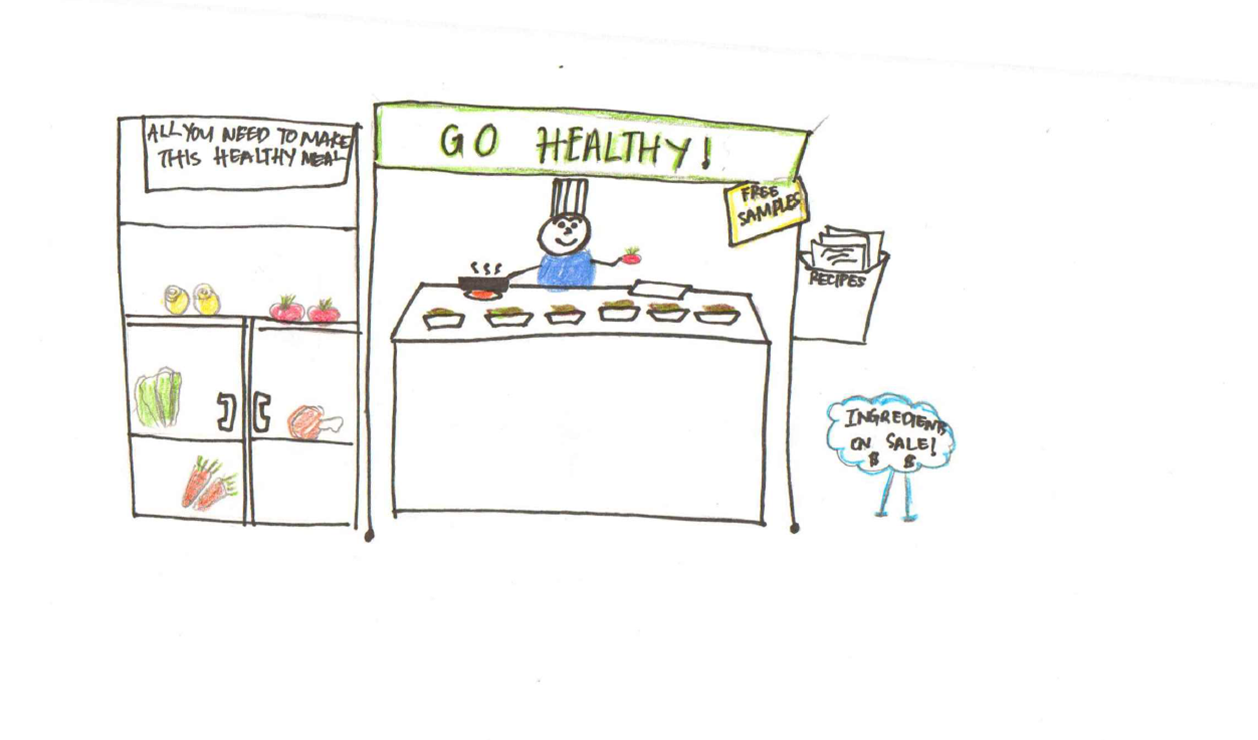 ALL YOU NEED TO MAKE
THIS HEALTHY MEAL
GO HEALTHY!
FREE
SAMPLES
RECIPES
INGREDIENTS
ON SALE!
$ $